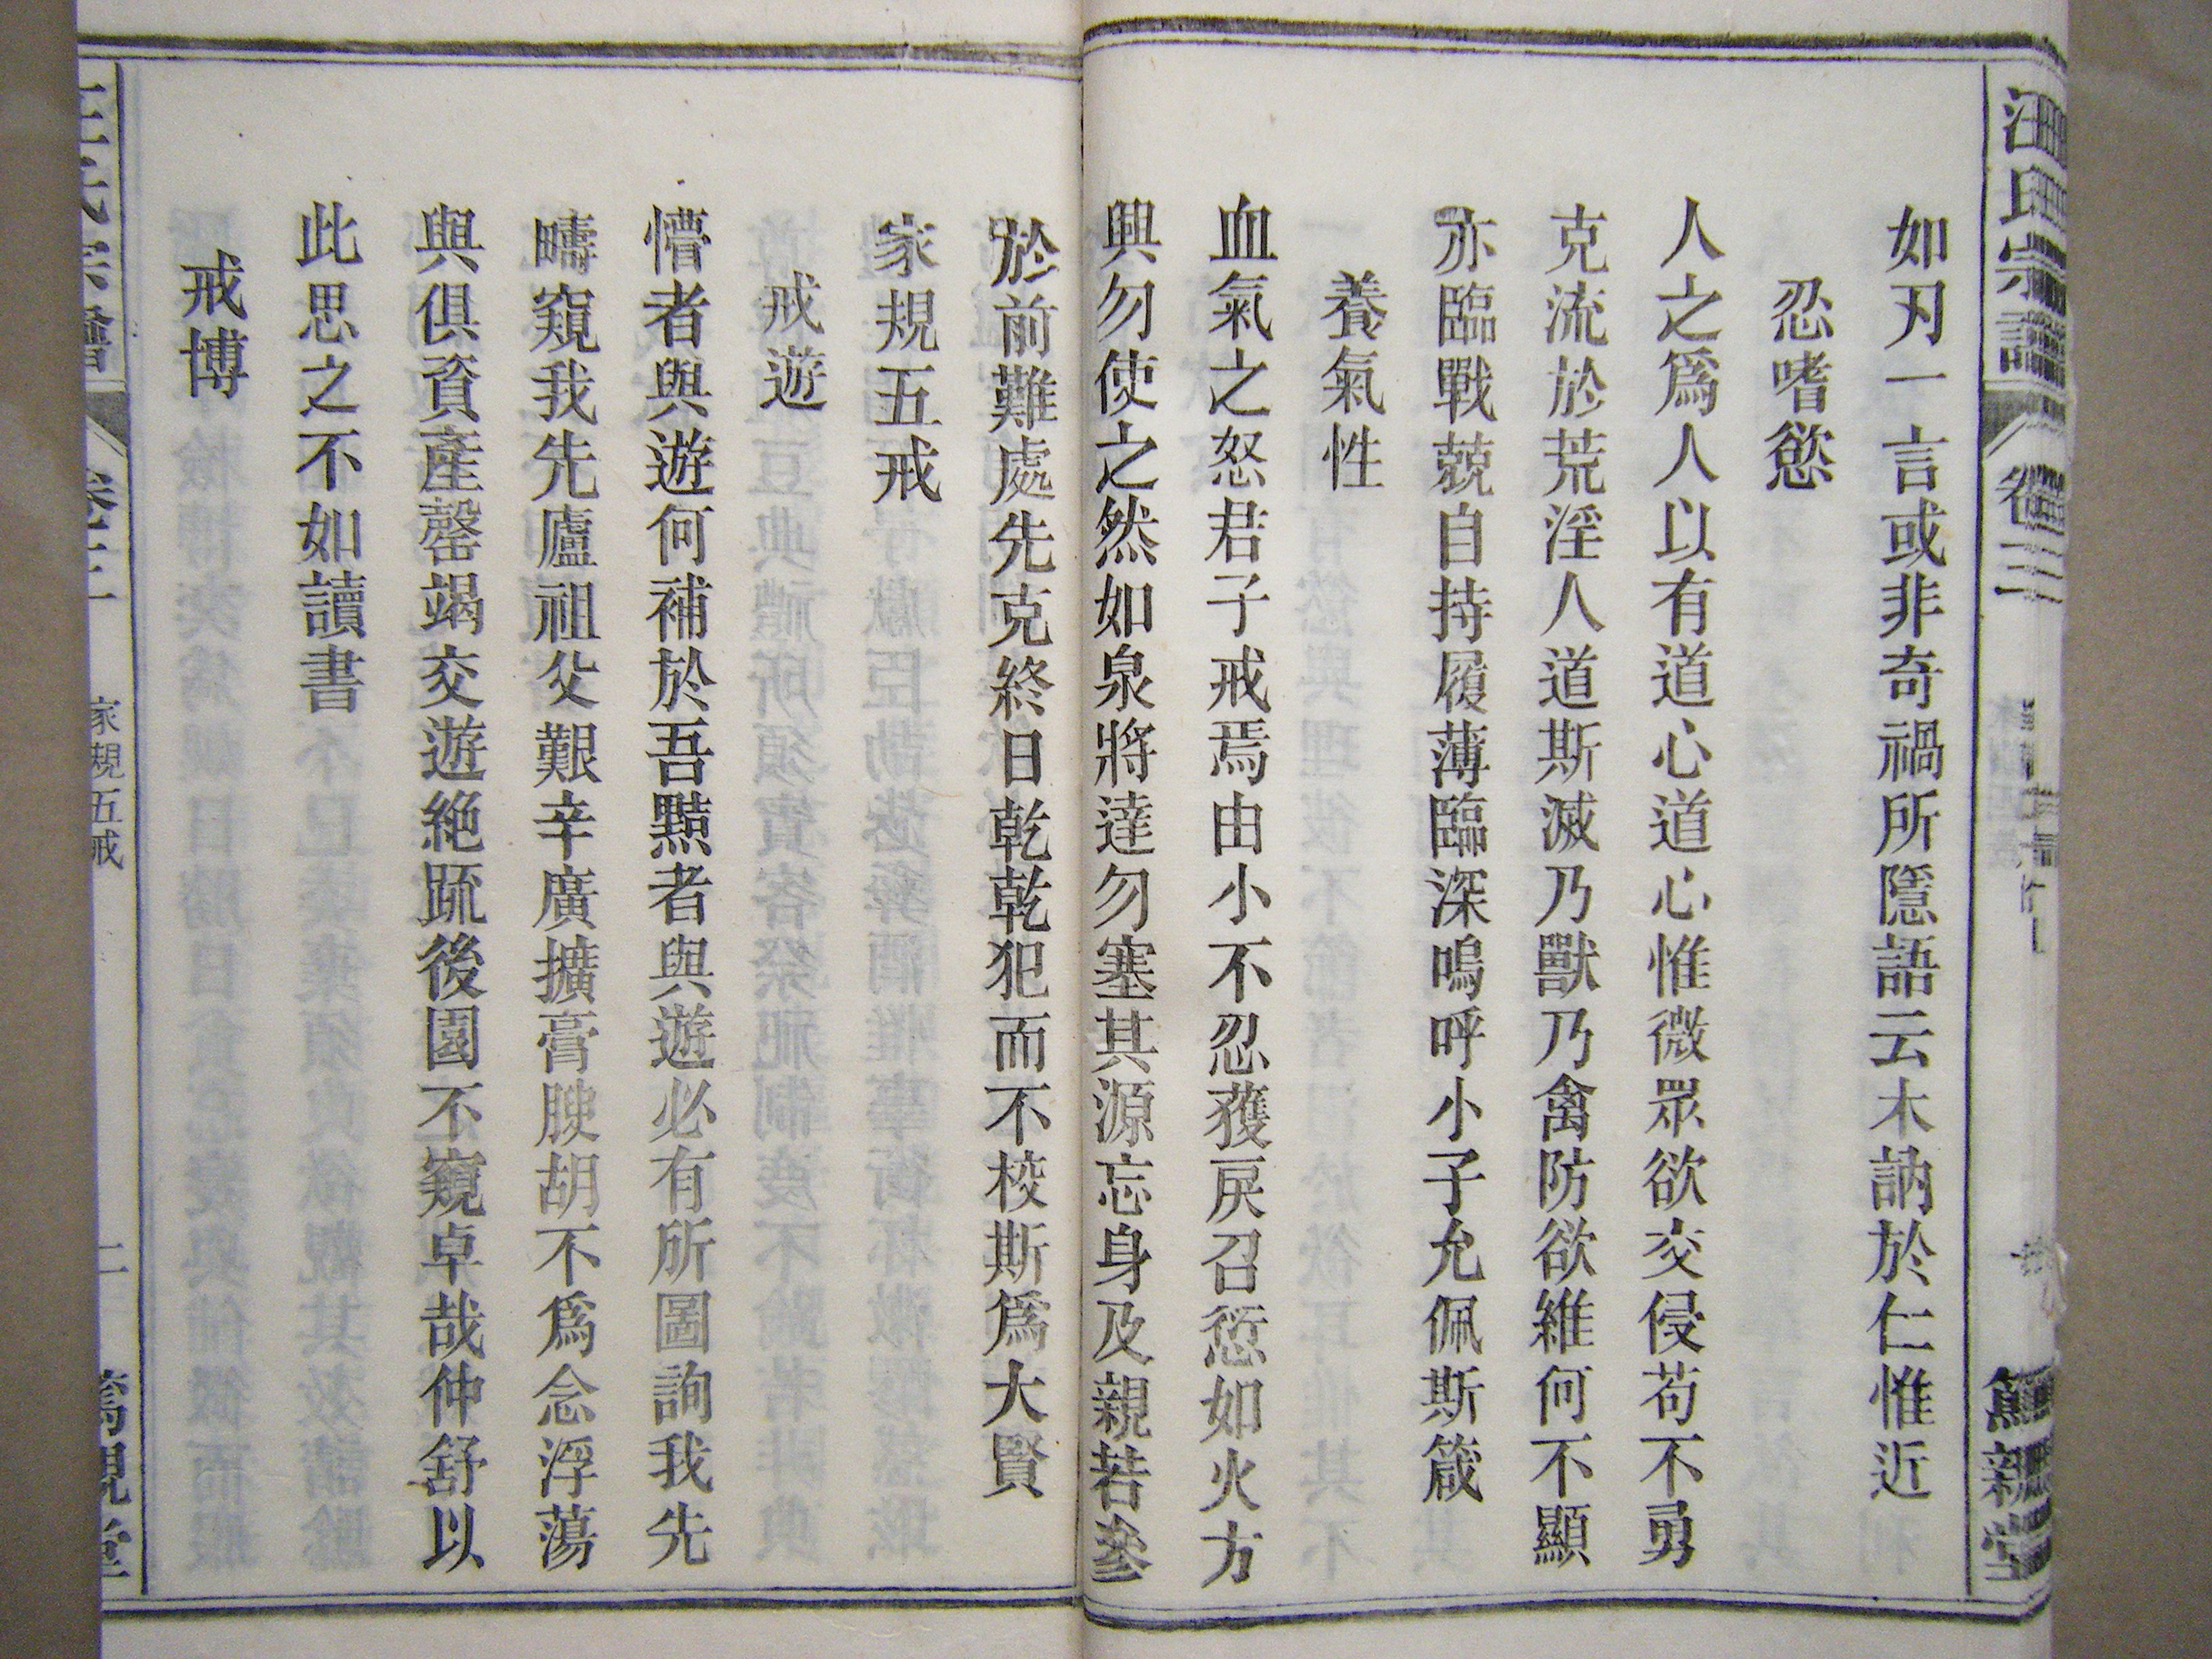 汪氏宗譜
卷三
敦親堂
如刃一言或非奇禍所隱語云木訥於仁惟近
忍嗜慾
人之爲人以有道心道心惟微眾欲交侵苟不勇
克流於荒淫人道斯滅乃獸乃禽防欲維何不顯
亦臨戰兢自持履薄臨深嗚呼小子允佩斯箴
養氣性
血氣之怒君子戒焉由小不忍獲戾召愆如火方
興勿使之然如泉將達勿塞其源忘身及親若參
於前難處先克終日乾乾犯而不校斯爲大賢
家規五戒
戒遊
懵者與遊何補於吾黠者與遊必有所圖詢我先
疇窺我先廬祖父艱辛廣擴膏腴胡不爲念浮蕩
與俱資產罄竭交遊絶疏後園不窺卓哉仲舒以
此思之不如讀書
戒博
卷三
家規五戒
二